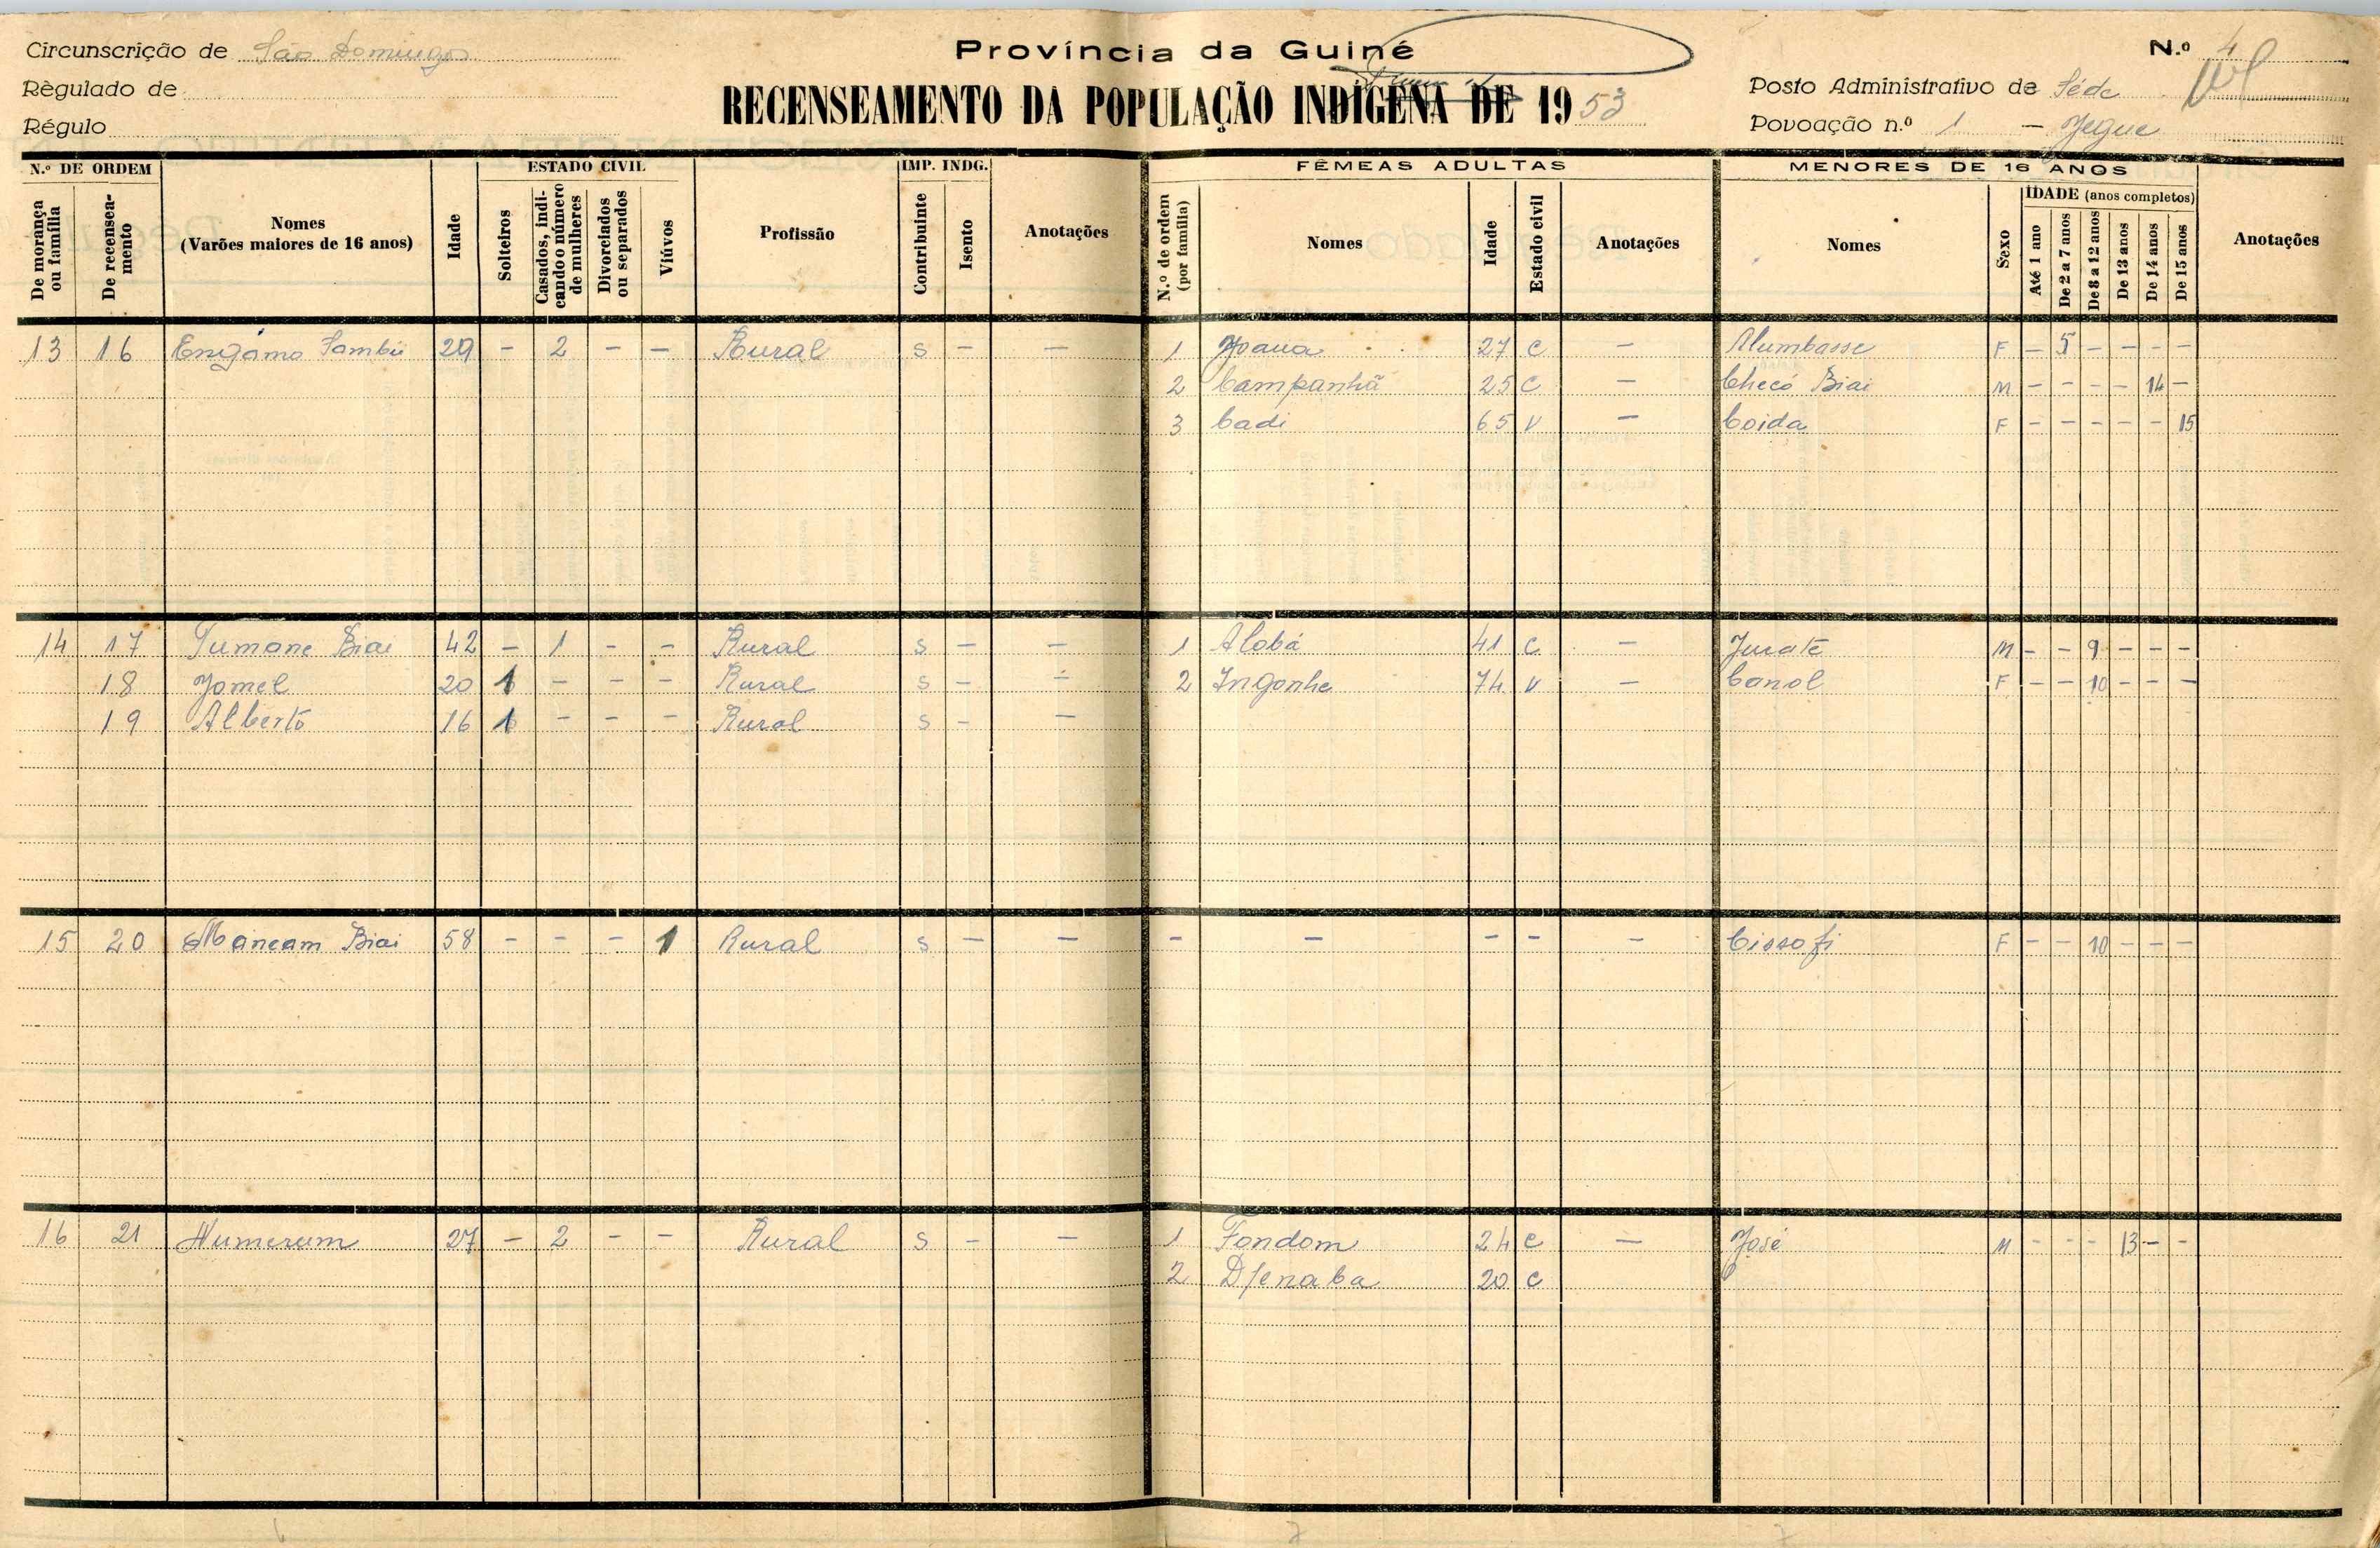 Circunscrição de São Domingos
Règulado de
Régulo
Província da Guiné
RECENSEAMENTO DA POPULAÇÃO INDÍGENA DE 1953
N.º 4
Posto Administrativo de Séde
Povoação n.º 1 — Jegue
N.º DE ORDEM
De morança ou família
De recenseamento
Nomes
(Varões maiores de 16 anos)
Idade
ESTADO CIVIL
Solteiros
Casados, indicando o número de mulheres
Divorciados ou separados
Viúvos
Profissão
IMP. INDG.
Contribuinte
Isento
Anotações
FÊMEAS ADULTAS
N.º de ordem (por família)
Nomes
Idade
Estado civil
Anotações
MENORES DE 16 ANOS
Nomes
Sexo
IDADE (anos completos)
Até 1 ano
De 2 a 7 anos
De 8 a 12 anos
De 13 anos
De 14 anos
De 15 anos
Anotações
13 16 Engamo Sambú 29 - 2 - - Rural S - - 1 Joana 27 C - Alumbasse F - 5 - - - -
2 Campanhã 25 C - Checó Biai M - - - - 14 -
3 Cadi 65 V - Coida F - - - - - 15
14 17 Tumane Biai 42 - 1 - - Rural S - - 1 Alobá 41 C - Juraté M - - 9 - - -
18 Jomel 20 1 - - - Rural S - - 2 Ingonhe 74 V - Canol F - - 10 - - -
19 Alberto 16 1 - - - Rural S - -
15 20 Mancam Biai 58 - - - 1 Rural S - - - - - - - Cissofi F - - 10 - - -
16 21 Numerum 27 - 2 - - Rural S - - 1 Fondom 24 C - José M - - - 13 - -
2 Djenaba 20 C